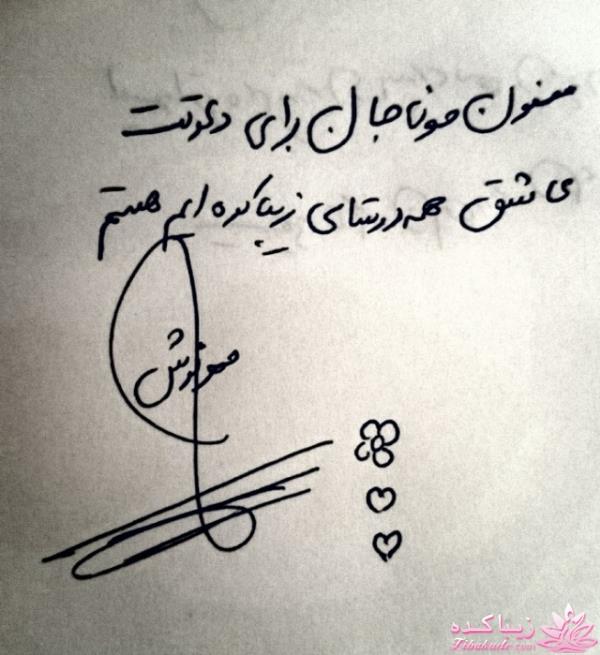 ممنون مونا جان برای دعوتت
عاشق همه دوستای زیباکده ایم هستم
مهنوش
زیباکده
Zibakade.com